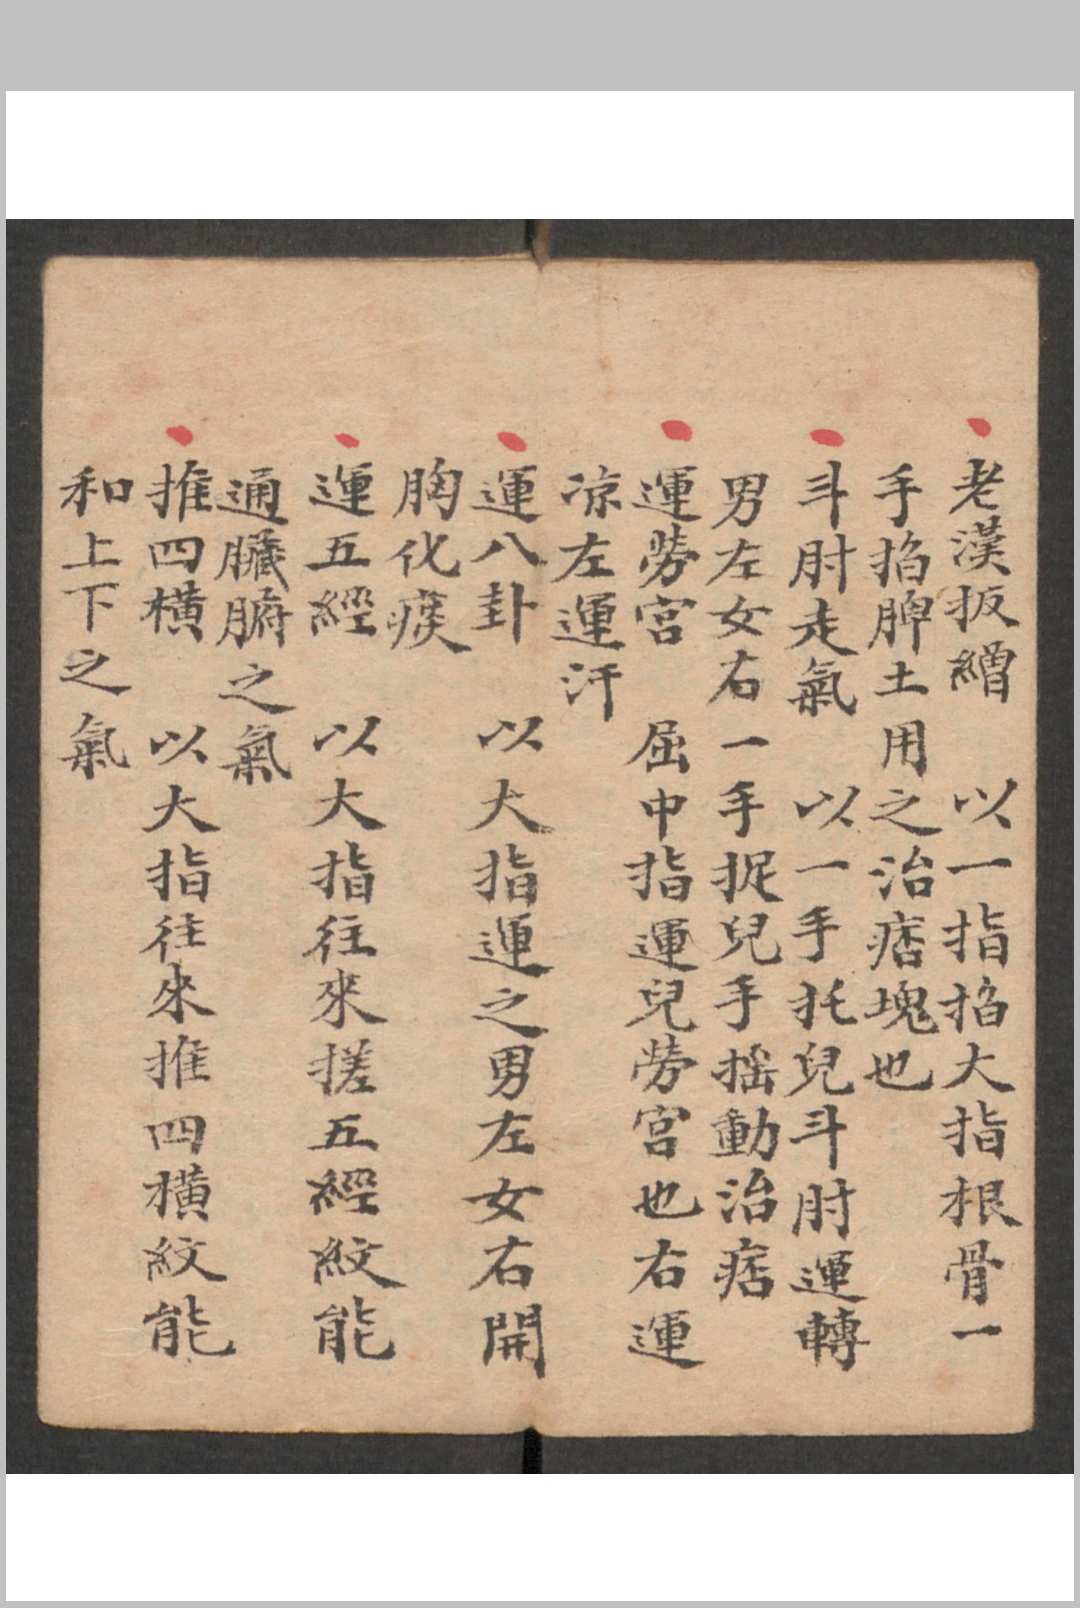 老漢扳繒　以一指掐大指根骨一
手掐脾土用之治痞塊也
斗肘走氣　以一手托兒斗肘運轉
男左女右一手捉兒手摇動治痞
運勞宮　屈中指運兒勞宮也右運
凉左運汗
運八卦　以大指運之男左女右開
胸化痰
運五經　以大指往來搓五經紋能
通臟腑之氣
推四横　以大指往來推四横紋能
和上下之氣